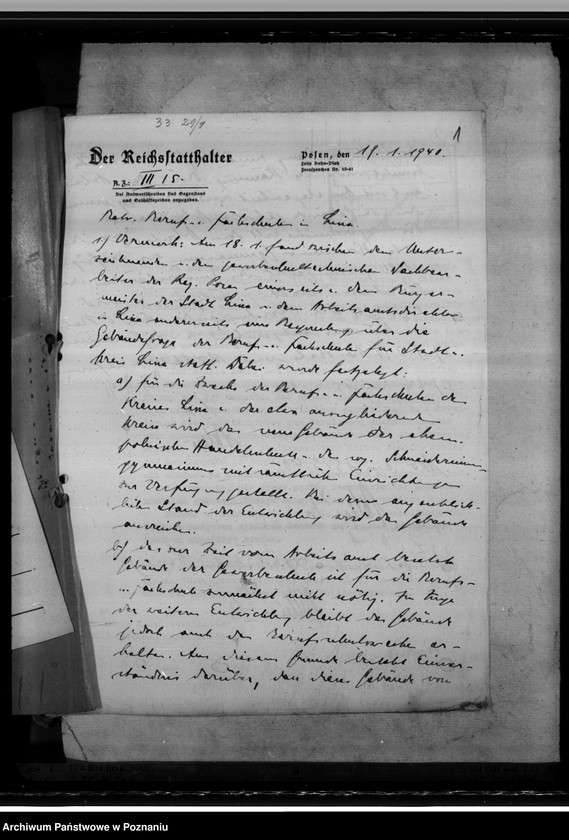 33 29/1
1
Der Reichsstatthalter
Posen, den 19. 1. 1940.
A.Z.: III 15.
Bei Antwortschreiben sind Gegenstand
und Geschäftszeichen anzugeben.
Betr. Beruf- u. Fachschulen in Lissa.
1) Vermerk: Am 18. 1. fand zwischen dem Unter-
zeichneten u. dem gewerbeschultechnischen Sachbear-
beiter der Reg. Posen einerseits u. dem Bürger-
meister der Stadt Lissa u. dem Arbeitsamtsdirektor
in Lissa andererseits eine Besprechung über die
Gebäudefrage der Beruf- u. Fachschule für Stadt- u.
Kreis Lissa statt. Dabei wurde festgelegt:
a) für die Zwecke der Berufs- u. Fachschulen des
Kreises Lissa u. der
Kreise wird das neue Gebäude der ehem.
polnischen Handelsschule u. des sog. Schneiderinnen-
gymnasiums mit sämtlichen Einrichtungen
zur Verfügung gestellt. Bei dem augenblick-
lichen Stand der Entwicklung wird das Gebäude
ausreichen.
b) das zur Zeit vom Arbeitsamt besetzte
Gebäude der Gewerbeschule ist für die Berufs-
Fachschule zunächst nicht nötig. Im Zuge
der weiteren Entwicklung bleibt das Gebäude
jedoch auch den Berufsschulzwecken er-
halten. Aus diesem Grunde besteht Einver-
ständnis darüber, dass dieses Gebäude von
Archiwum Państwowe w Poznaniu